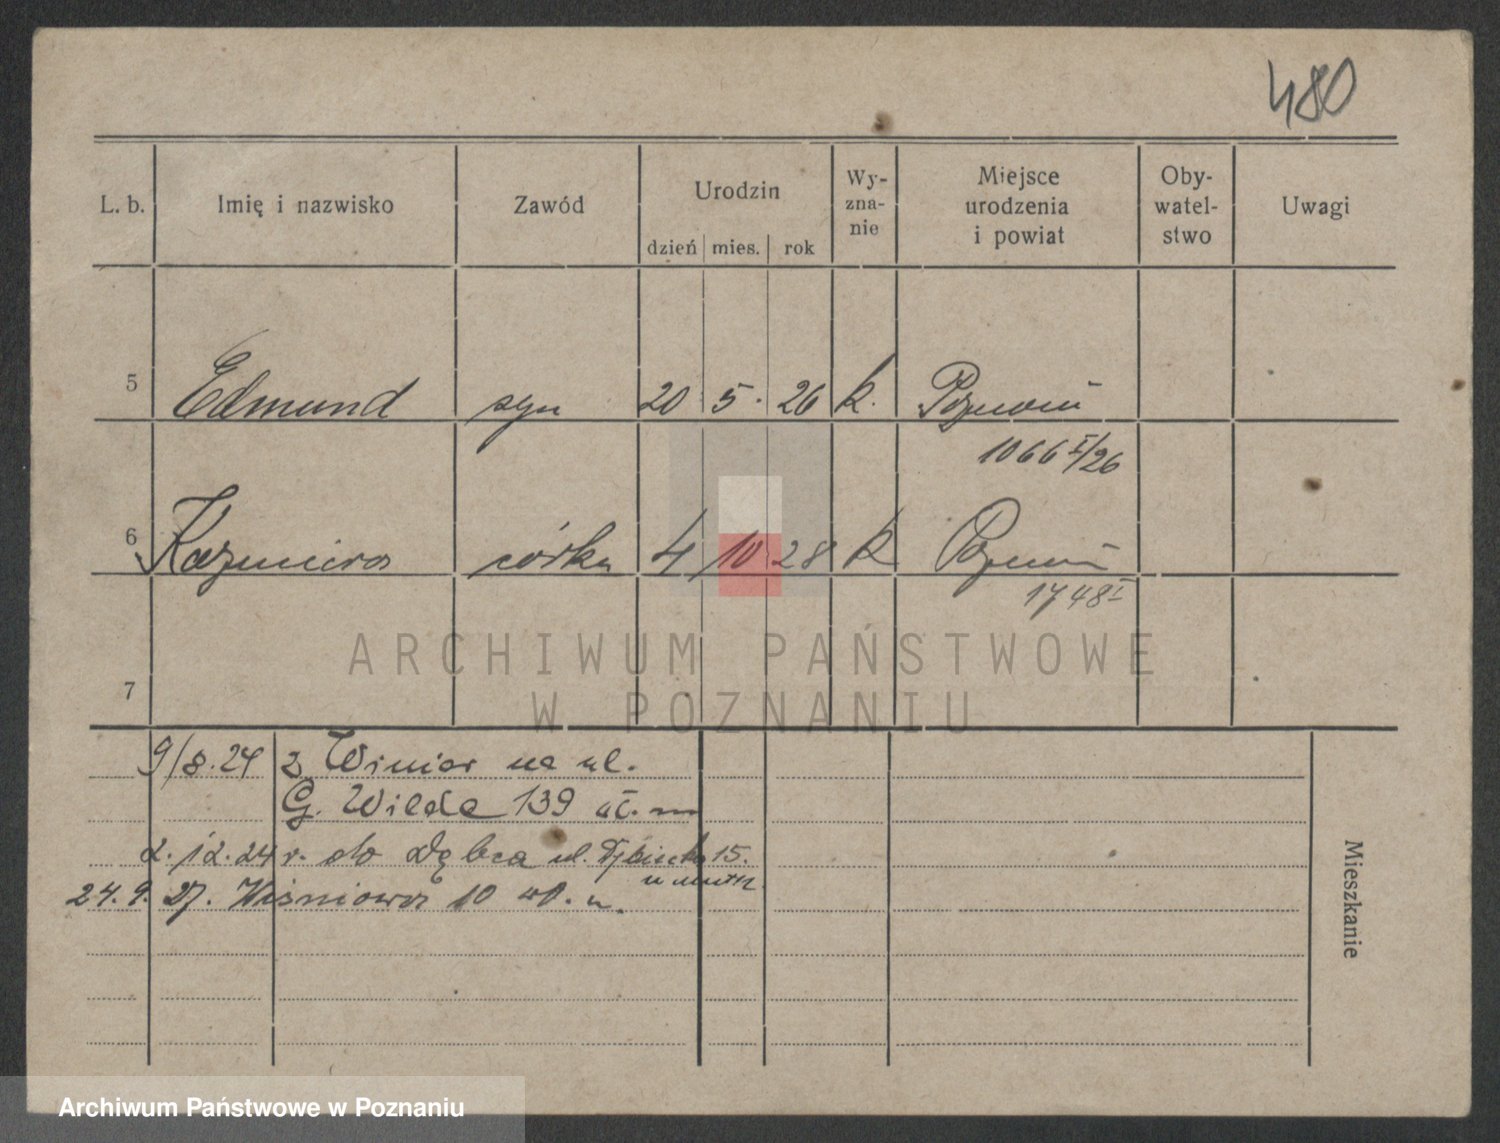 480
L. b. Imię i nazwisko Zawód Urodzin dzień mies. rok Wy-zna-nie Miejsce urodzenia i powiat Oby-watel-stwo Uwagi
5 Edmund syn 20 5. 26 k. Poznań
1066 I/26
6 Kazimiera córka 4 10 28 k Poznań
1748 I
ARCHIWUM PAŃSTWOWE
W POZNANIU
7
9/8.24 z Winiar na ul.
G. Wilda 139
2.12.24 r. do Dębca ul. 15.
24.9.27. Wiśniowa 10
Mieszkanie
Archiwum Państwowe w Poznaniu